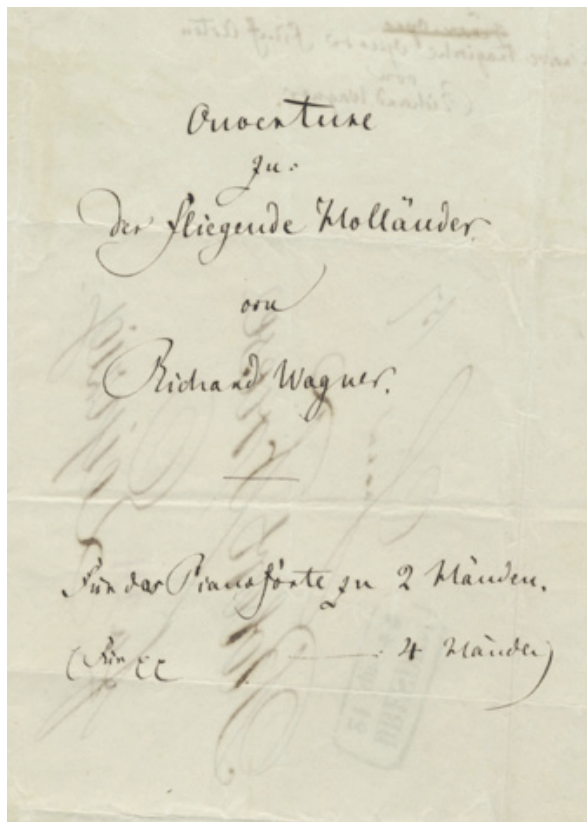 Ouverture
zu:
der fliegende Holländer
von
Richard Wagner.
Für das Pianoforte zu 2 Händen.
(Für 4 Hände)